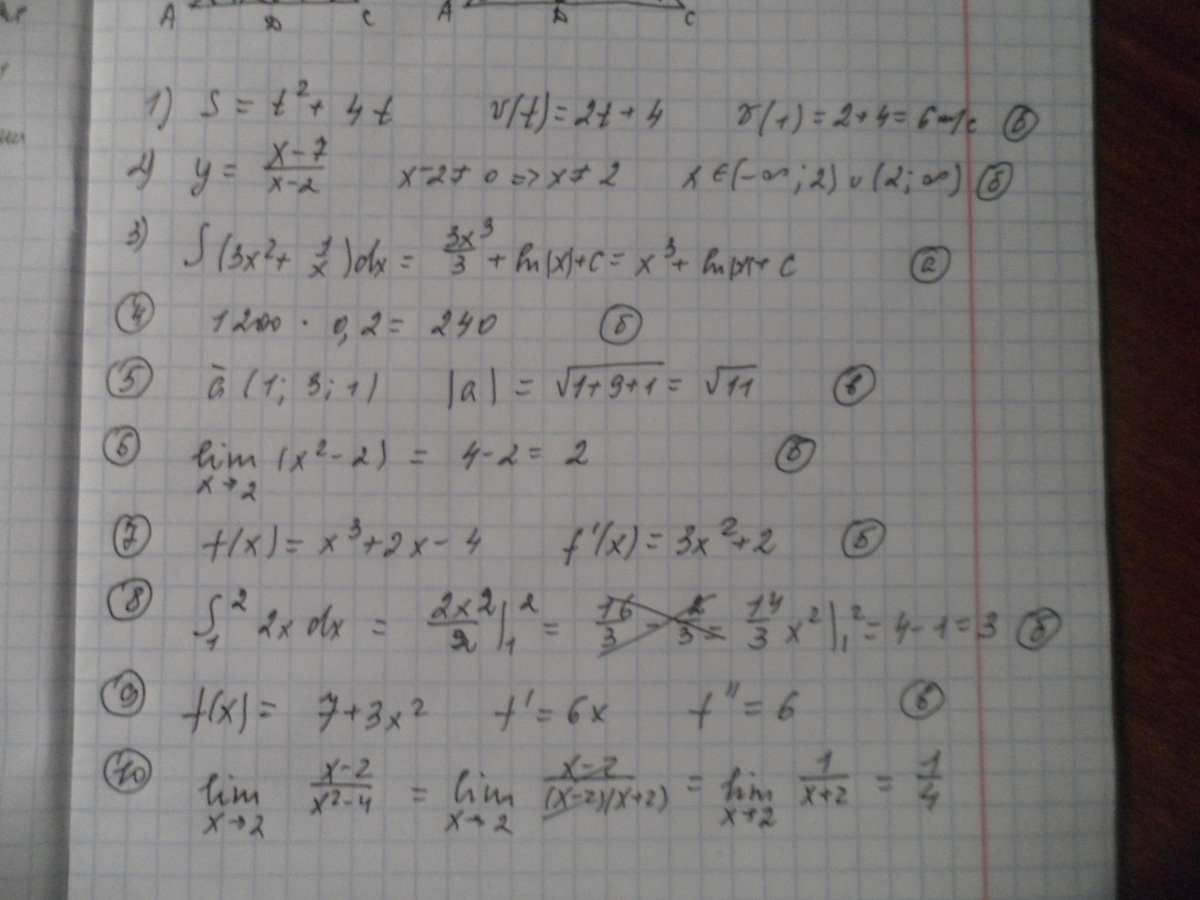 A D C A D C
1) S = t² + 4t v(t) = 2t + 4 v(1) = 2+4 = 6 м/с
2) y = (x-7)/(x-2) x-2≠0 => x≠2 x∈(-∞; 2) ∪ (2; ∞) (б)
3) ∫(3x² + 1/x)dx = 3x³/3 + ln|x| + c = x³ + ln|x| + c (а)
(4) 1200 · 0,2 = 240 (б)
(5) ā (1; 3; 1) |a| = √(1+9+1) = √11 (в)
(6) lim x→2 (x²-2) = 4-2 = 2 (б)
(7) f(x) = x³+2x-4 f'(x) = 3x²+2 (б)
(8) ∫₁² 2x dx = 2x²/2 |₁² = 16/3 - 2/3 = 14/3 x²|₁² = 4-1 = 3 (б)
(9) f(x) = 7+3x² f' = 6x f'' = 6 (в)
(10) lim x→2 (x-2)/(x²-4) = lim x→2 (x-2)/((x-2)(x+2)) = lim x→2 1/(x+2) = 1/4